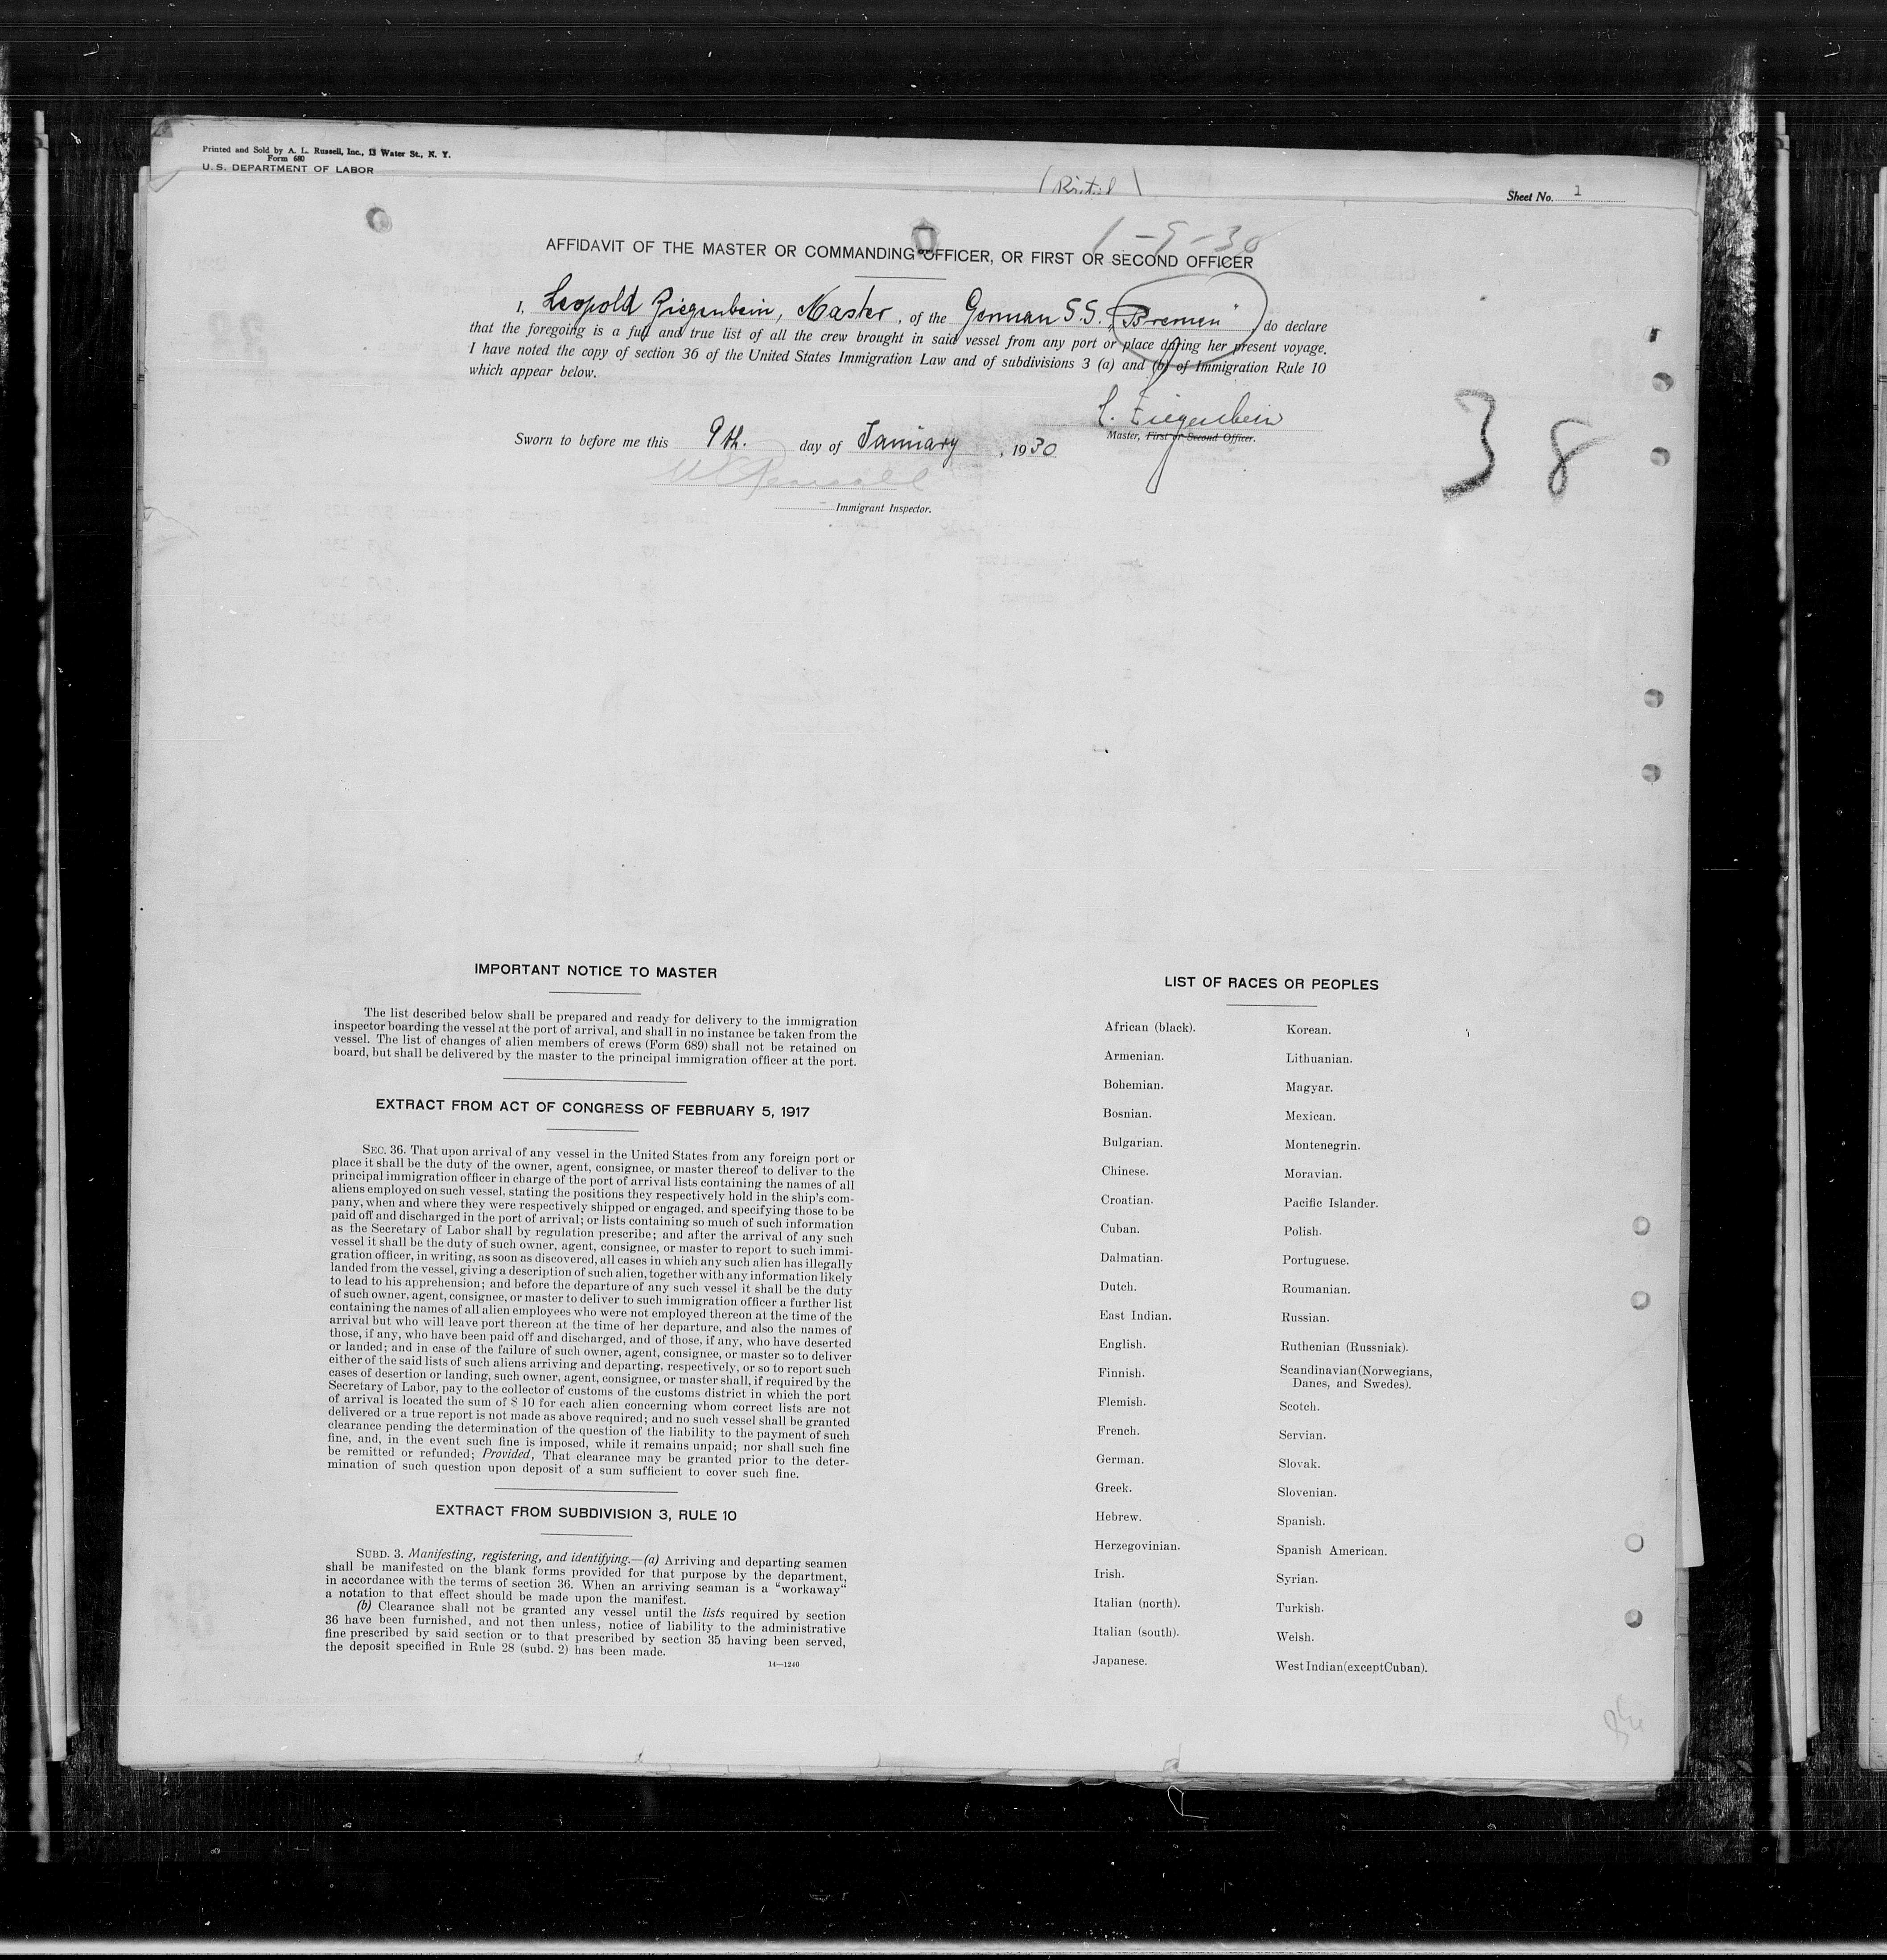 Printed and Sold by A. L. Russell, Inc., 13 Water St., N. Y.
Form 680
U. S. DEPARTMENT OF LABOR
Sheet No. 1
1-9-30
AFFIDAVIT OF THE MASTER OR COMMANDING OFFICER, OR FIRST OR SECOND OFFICER
I, Leopold Ziegenbein, Master, of the German S.S. "Bremen", do declare
that the foregoing is a full and true list of all the crew brought in said vessel from any port or place during her present voyage.
I have noted the copy of section 36 of the United States Immigration Law and of subdivisions 3 (a) and (b) of Immigration Rule 10
which appear below.
L. Ziegenbein
Master, First or Second Officer.
Sworn to before me this 9th. day of January, 1930
Immigrant Inspector.
38
IMPORTANT NOTICE TO MASTER
The list described below shall be prepared and ready for delivery to the immigration
inspector boarding the vessel at the port of arrival, and shall in no instance be taken from the
vessel. The list of changes of alien members of crews (Form 689) shall not be retained on
board, but shall be delivered by the master to the principal immigration officer at the port.
EXTRACT FROM ACT OF CONGRESS OF FEBRUARY 5, 1917
SEC. 36. That upon arrival of any vessel in the United States from any foreign port or
place it shall be the duty of the owner, agent, consignee, or master thereof to deliver to the
principal immigration officer in charge of the port of arrival lists containing the names of all
aliens employed on such vessel, stating the positions they respectively hold in the ship's com-
pany, when and where they were respectively shipped or engaged, and specifying those to be
paid off and discharged in the port of arrival; or lists containing so much of such information
as the Secretary of Labor shall by regulation prescribe; and after the arrival of any such
vessel it shall be the duty of such owner, agent, consignee, or master to report to such immi-
gration officer, in writing, as soon as discovered, all cases in which any such alien has illegally
landed from the vessel, giving a description of such alien, together with any information likely
to lead to his apprehension; and before the departure of any such vessel it shall be the duty
of such owner, agent, consignee, or master to deliver to such immigration officer a further list
containing the names of all alien employees who were not employed thereon at the time of the
arrival but who will leave port thereon at the time of her departure, and also the names of
those, if any, who have been paid off and discharged, and of those, if any, who have deserted
or landed; and in case of the failure of such owner, agent, consignee, or master so to deliver
either of the said lists of such aliens arriving and departing, respectively, or so to report such
cases of desertion or landing, such owner, agent, consignee, or master shall, if required by the
Secretary of Labor, pay to the collector of customs of the customs district in which the port
of arrival is located the sum of $ 10 for each alien concerning whom correct lists are not
delivered or a true report is not made as above required; and no such vessel shall be granted
clearance pending the determination of the question of the liability to the payment of such
fine, and, in the event such fine is imposed, while it remains unpaid; nor shall such fine
be remitted or refunded; Provided, That clearance may be granted prior to the deter-
mination of such question upon deposit of a sum sufficient to cover such fine.
EXTRACT FROM SUBDIVISION 3, RULE 10
SUBD. 3. Manifesting, registering, and identifying.—(a) Arriving and departing seamen
shall be manifested on the blank forms provided for that purpose by the department,
in accordance with the terms of section 36. When an arriving seaman is a "workaway"
a notation to that effect should be made upon the manifest.
(b) Clearance shall not be granted any vessel until the lists required by section
36 have been furnished, and not then unless, notice of liability to the administrative
fine prescribed by said section or to that prescribed by section 35 having been served,
the deposit specified in Rule 28 (subd. 2) has been made.
14—1240
LIST OF RACES OR PEOPLES
African (black).
Armenian.
Bohemian.
Bosnian.
Bulgarian.
Chinese.
Croatian.
Cuban.
Dalmatian.
Dutch.
East Indian.
English.
Finnish.
Flemish.
French.
German.
Greek.
Hebrew.
Herzegovinian.
Irish.
Italian (north).
Italian (south).
Japanese.
Korean.
Lithuanian.
Magyar.
Mexican.
Montenegrin.
Moravian.
Pacific Islander.
Polish.
Portuguese.
Roumanian.
Russian.
Ruthenian (Russniak).
Scandinavian (Norwegians,
Danes, and Swedes).
Scotch.
Servian.
Slovak.
Slovenian.
Spanish.
Spanish American.
Syrian.
Turkish.
Welsh.
West Indian (except Cuban).